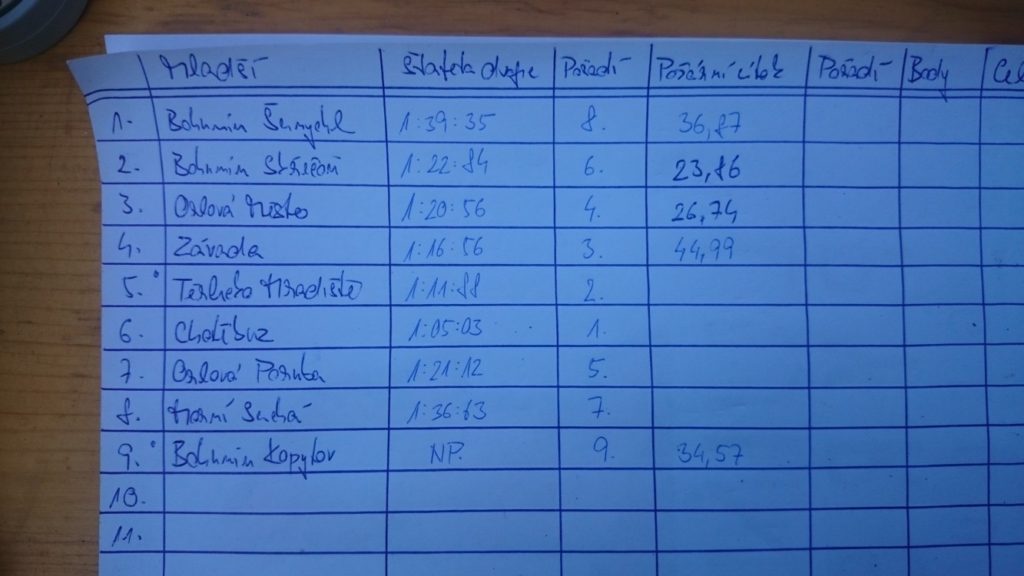 Mladší Štafeta dvojic Pořadí Požární útok Pořadí Body Cel
1. Bohumín Šunychl 1:39:35 8. 36,87
2. Bohumín Skřečoň 1:22:84 6. 23,86
3. Orlová Město 1:20:56 4. 26,74
4. Závada 1:16:56 3. 44,99
5. Těrlicko Hradiště 1:11:88 2.
6. Chotěbuz 1:05:03 1.
7. Orlová Poruba 1:21:12 5.
8. Horní Suchá 1:36:63 7.
9. Bohumín Kopytov NP. 9. 34,57
10.
11.